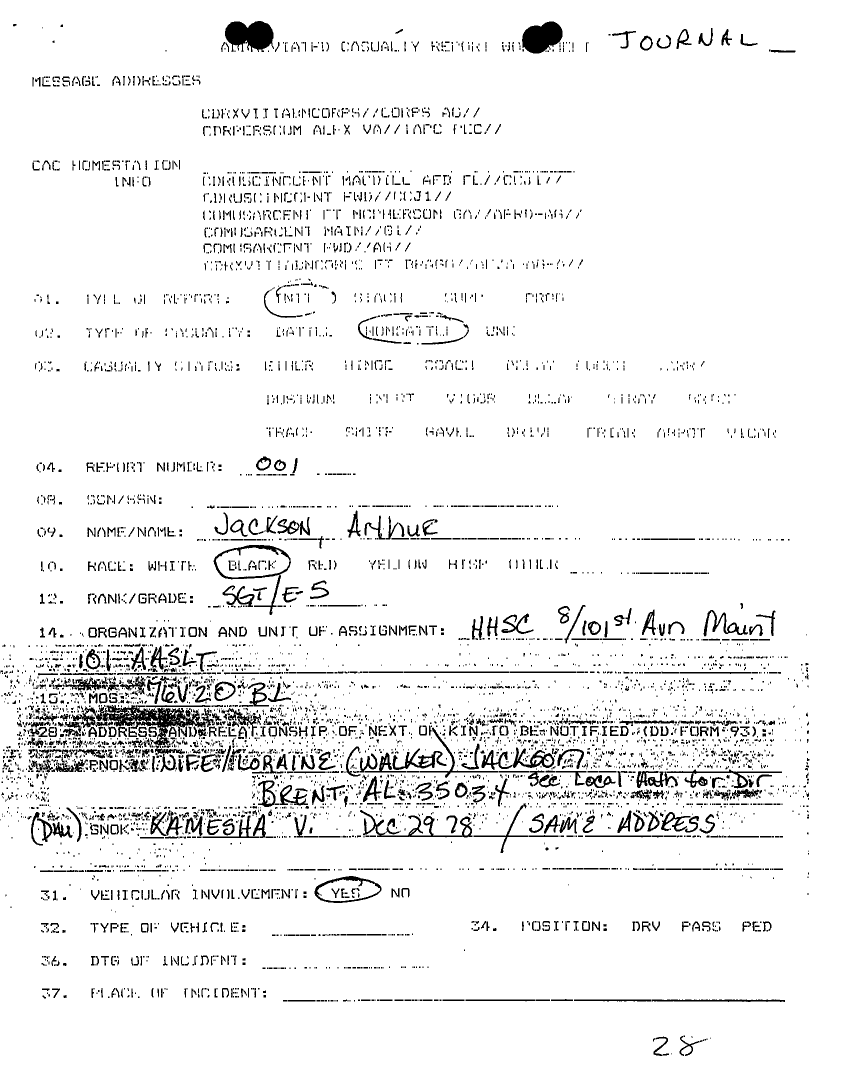 ABBREVIATED CASUALTY REPORT WORKSHEET JOURNAL
MESSAGE ADDRESSES
CDRXVIIIABNCORPS//CORPS AG//
CDRPERSCOM ALEX VA//TAPC PEC//
CAC HOMESTATION
INFO CDRUSCINCCENT MACDILL AFB FL//CCJ1//
CDRUSCINCCENT FWD//CCJ1//
COMUSARCENT FT MCPHERSON GA//AFRD-AG//
COMUSARCENT MAIN//G1//
COMUSARCENT FWD//AG//
CDRXVIIIABNCORPS FT BRAGG//AFZA-AG-A//
01. TYPE OF REPORT: INIT STACH SUPP PROG
02. TYPE OF CASUALTY: BATTLE NONBATTLE UNK
03. CASUALTY STATUS: ETHER HINGE COACH DELAY
DUSTWUN INERT VIGOR BLEAK STRAY
TRACE SMITE GAVEL DRIVE FRIAR ARBOT VICAR
04. REPORT NUMBER: 001
08. SSN/SSN:
09. NAME/NAME: Jackson, Arthur
10. RACE: WHITE BLACK RED YELLOW HISP OTHER
12. RANK/GRADE: SGT/E-5
14. ORGANIZATION AND UNIT OF ASSIGNMENT: HHSC 8/101st Avn Maint
101 AASLT
15. MOS: 76V20 BL
28. ADDRESS AND RELATIONSHIP OF NEXT OF KIN TO BE NOTIFIED (DD FORM 93):
PNOK: WIFE/LORAINE (WALKER) JACKSON
BRENT, AL 35034 See Local Hath for Dir
(DAU) SNOK: KAMESHA V. DEC 29 78 / SAME ADDRESS
31. VEHICULAR INVOLVEMENT: YES NO
32. TYPE OF VEHICLE: 34. POSITION: DRV PASS PED
36. DTG OF INCIDENT:
37. PLACE OF INCIDENT:
28